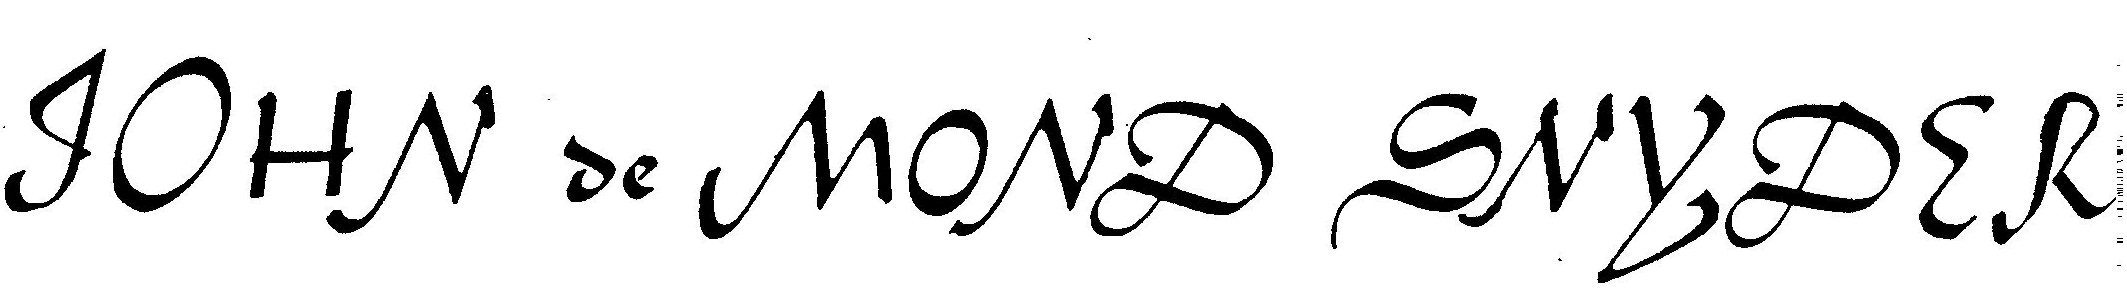 JOHN de MOND SNYDER